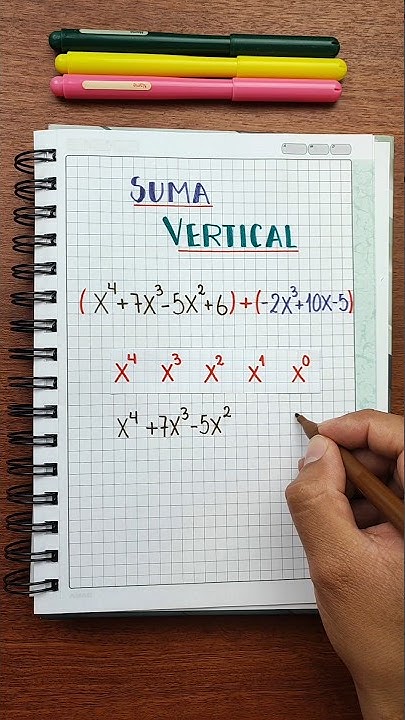 SUMA
VERTICAL
(x⁴+7x³-5x²+6)+(-2x³+10x-5)
x⁴ x³ x² x¹ x⁰
x⁴+7x³-5x²